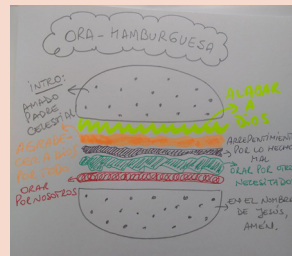 ORA-HAMBURGUESA
INTRO:
AMADO
PADRE
CELESTIAL
ALABAR
A
DIOS
POR TODO
ARREPENTIMIENTO
POR LO HECHO
MAL
ORAR POR OTROS
NECESITADOS
ORAR
POR NOSOTROS
EN EL NOMBRE
DE JESÚS,
AMÉN.